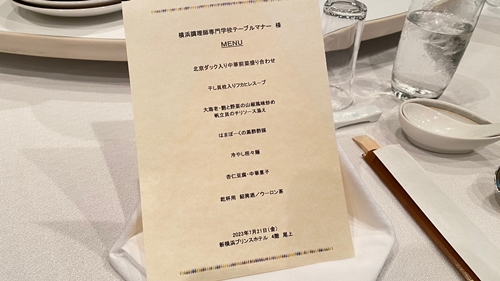 横浜調理師専門学校テーブルマナー 様
MENU
北京ダック入り中華前菜盛り合わせ
干し貝柱入りフカヒレスープ
大海老・鮑と野菜の山椒風味炒め
帆立貝のチリソース添え
はまぽーくの黒酢酢豚
冷やし担々麺
杏仁豆腐・中華菓子
乾杯用 紹興酒／ウーロン茶
2023年7月21日(金)
新横浜プリンスホテル 4階 尾上